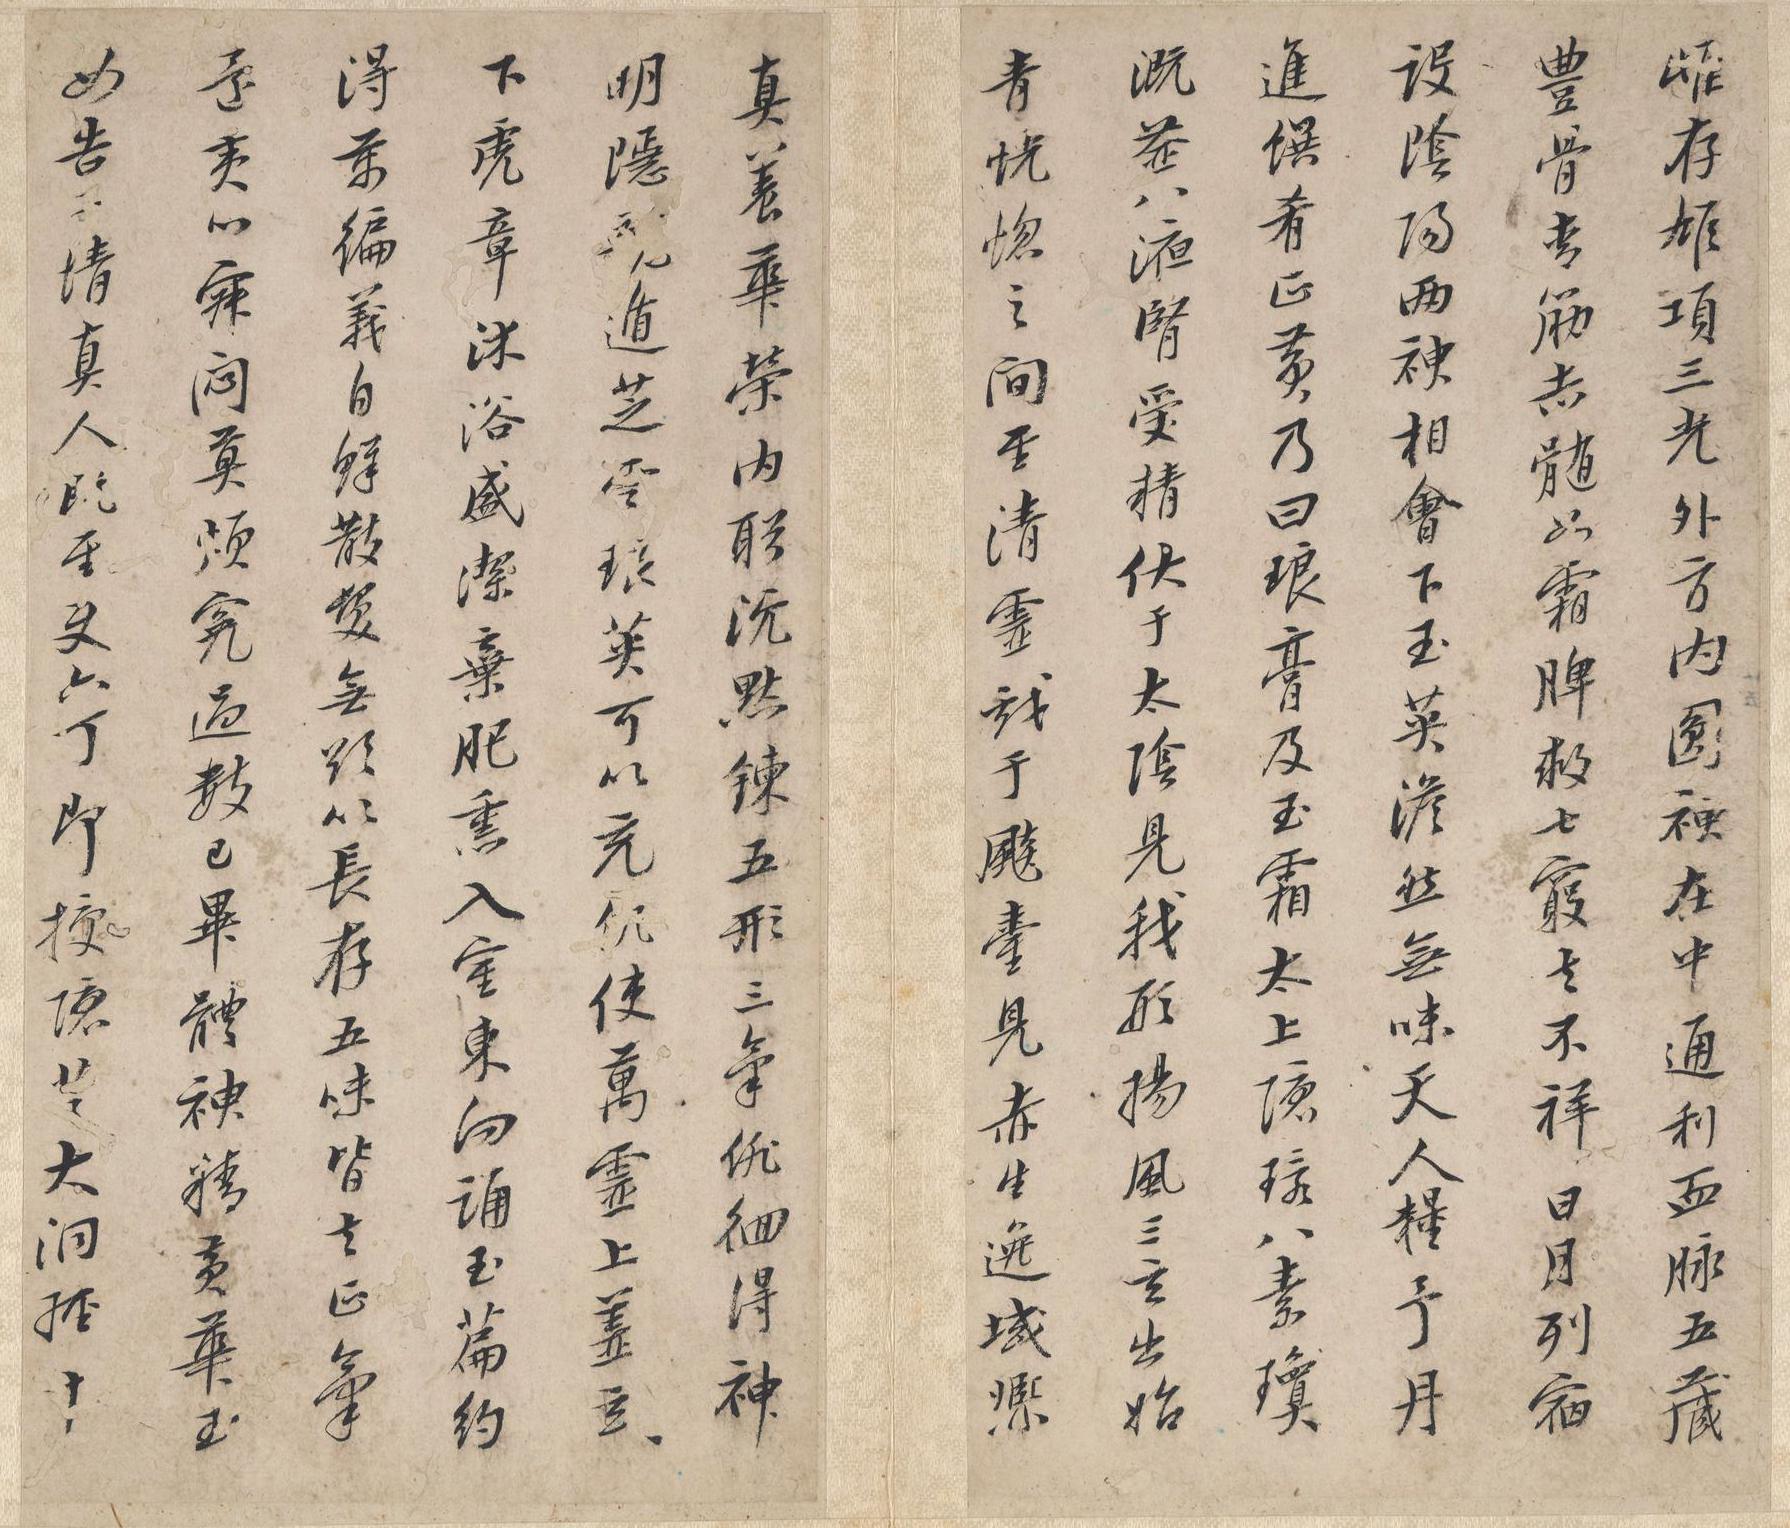 存雄項三光外方內圓神在中通利血脉五藏
豐骨青筋赤髓如霜脾救七竅去不祥日月列宿
設陰陽兩神相會下玉英澹然無味天人糧子丹
進饌肴正黃乃曰琅膏及玉霜太上隱環八素瓊
溉益八液腎受精伏于太陰見我形揚風三玄出始
青恍惚之間至清靈戲于飈臺見赤生逸域熙
真養華榮內盼沉默鍊五形三氣徘徊得神
明隱龍遁芝雲琅英可以充飢使萬靈上蓋玄
下虎章沐浴盛潔棄肥熏入室東向誦玉篇約
得萬徧義自鮮散髮無欲以長存五味皆去正氣
還夷心寂悶莫煩冤過數已畢體神精黃華玉
女告子情真人既至使六丁即授隱芝大洞經十